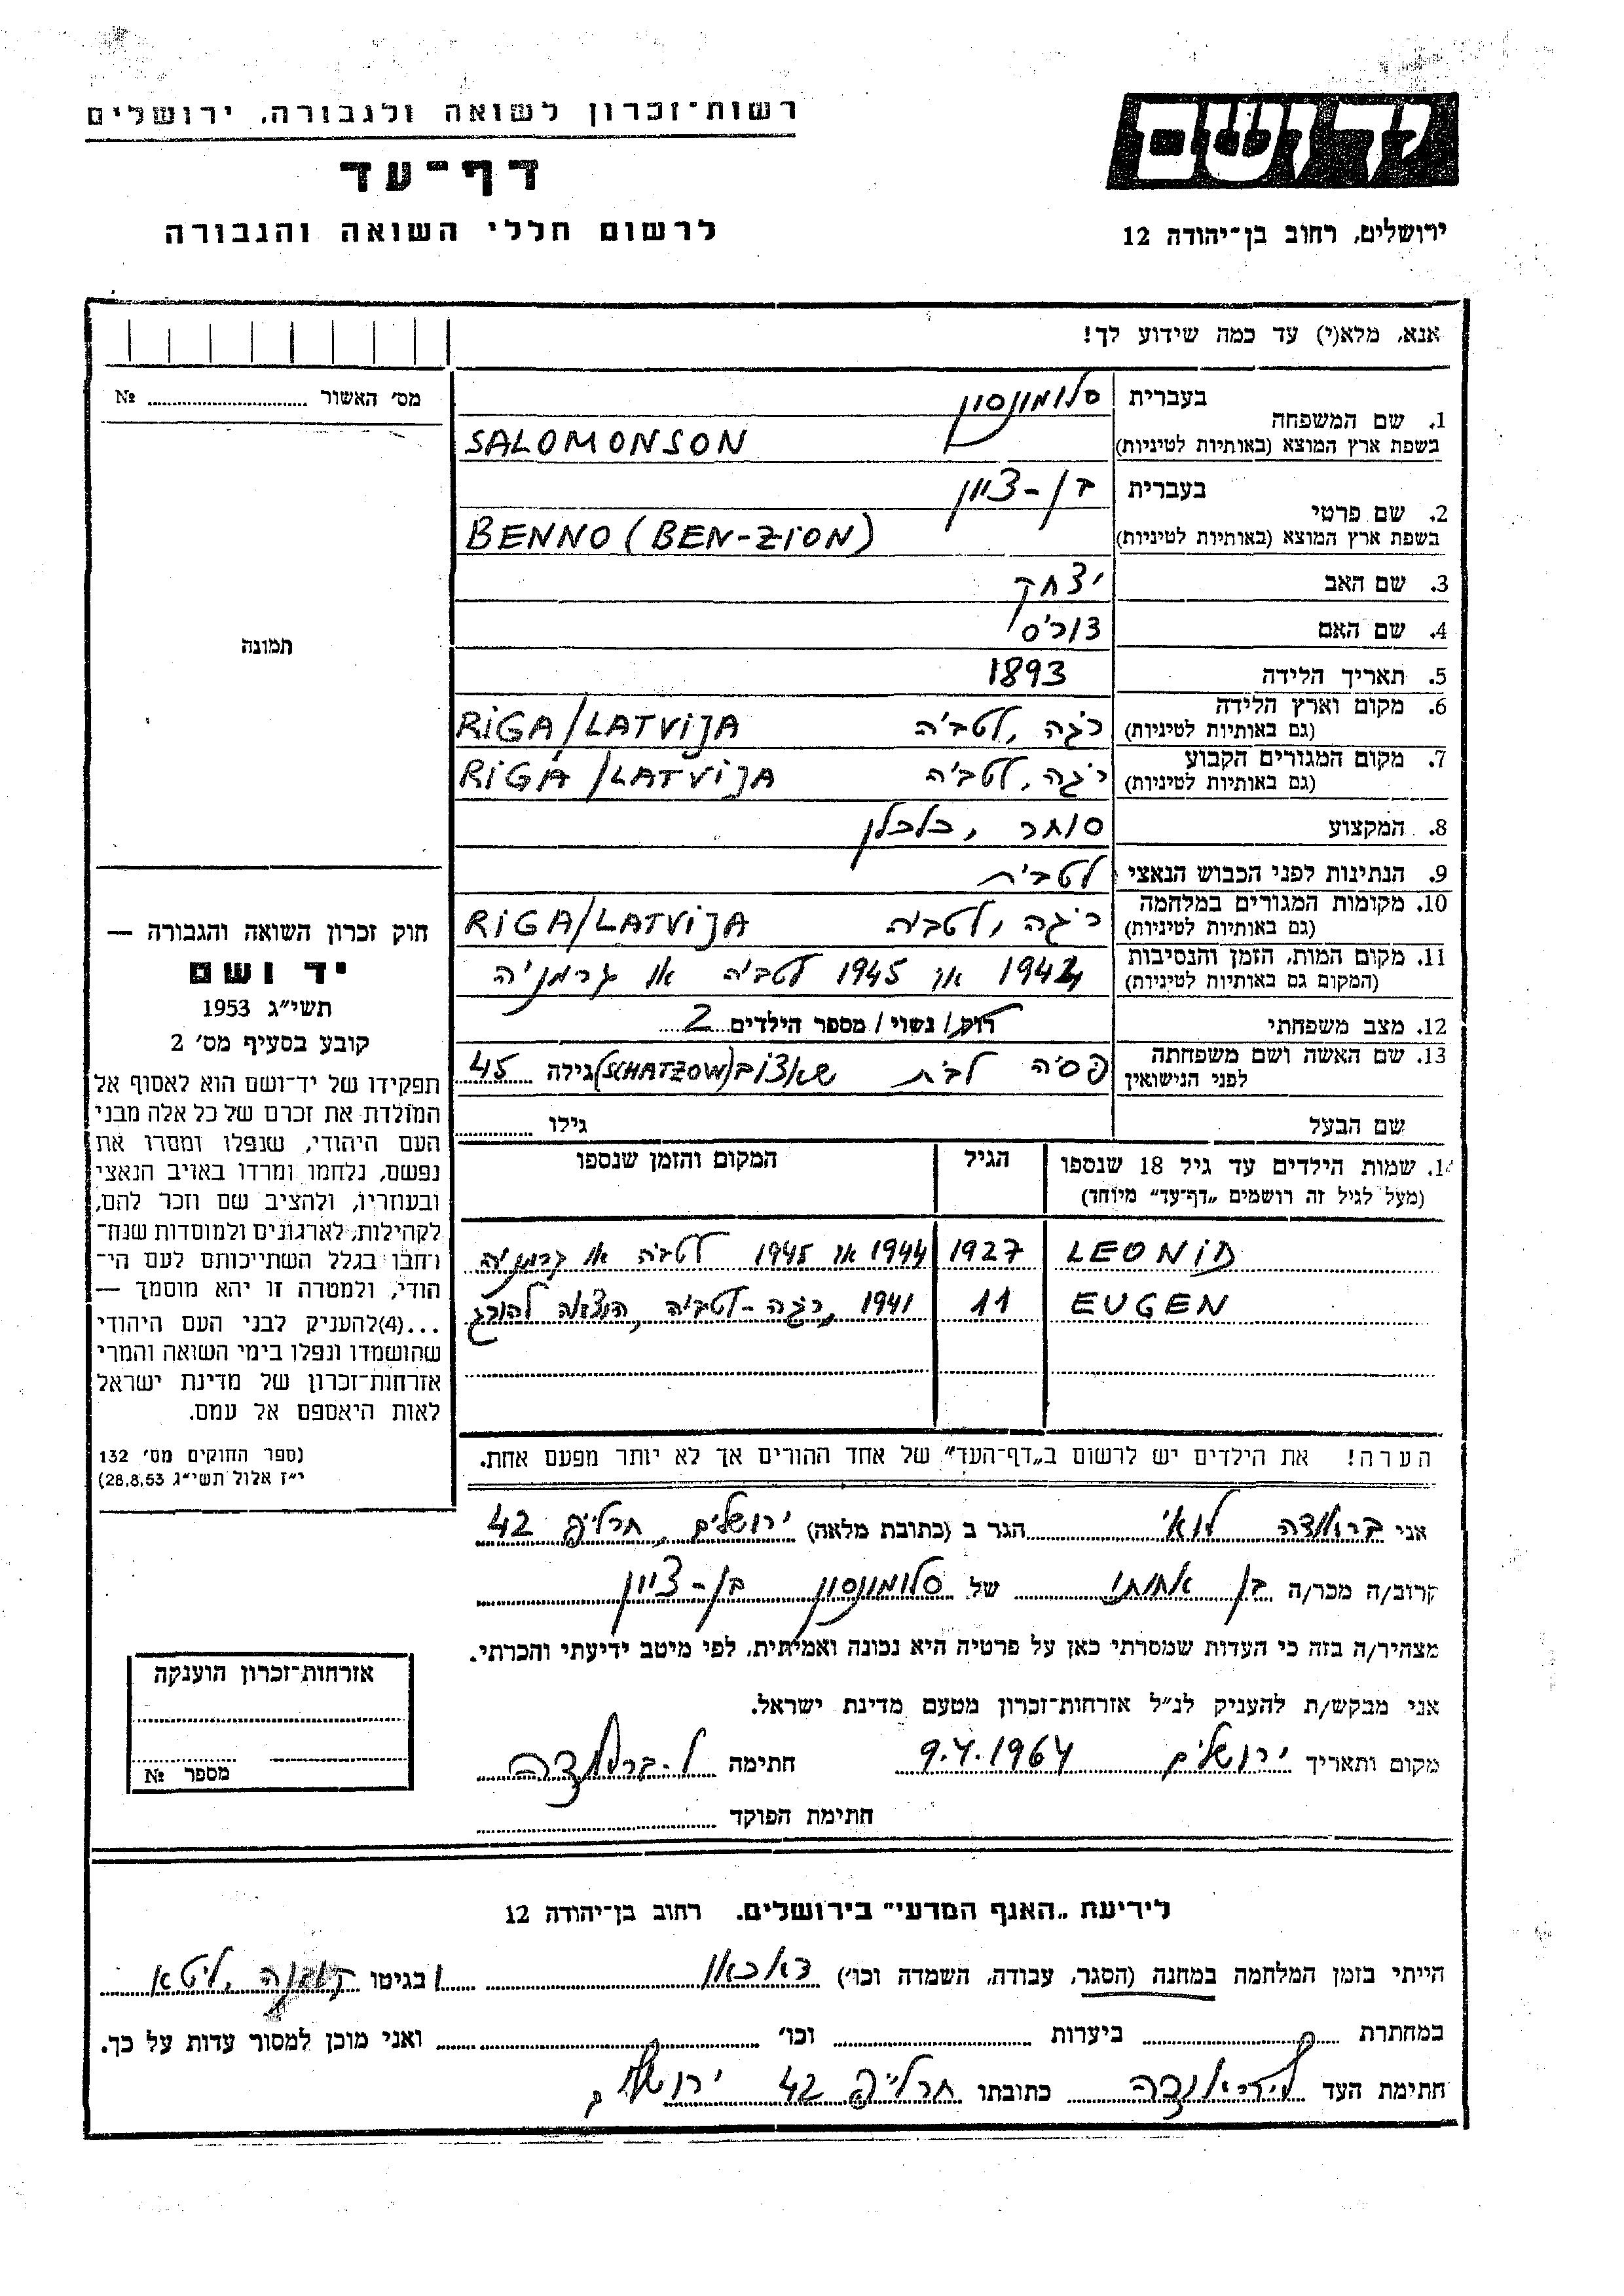 יד ושם
ירושלים, רחוב בן־יהודה 12
רשות־זכרון לשואה ולגבורה, ירושלים
דף־עד
לרשום חללי השואה והגבורה
אנא, מלא(י) עד כמה שידוע לך!
מס׳ האשור ........ №
תמונה
1. שם המשפחה
בעברית סלומונסון
בשפת ארץ המוצא (באותיות לטיניות) SALOMONSON
2. שם פרטי
בעברית בן-ציון
בשפת ארץ המוצא (באותיות לטיניות) BENNO (BEN-ZION)
3. שם האב יצחק
4. שם האם
5. תאריך הלידה 1893
6. מקום וארץ הלידה ריגה, לטביה RIGA/LATVIJA
(גם באותיות לטיניות)
7. מקום המגורים הקבוע ריגה, לטביה RIGA/LATVIJA
(גם באותיות לטיניות)
8. המקצוע סוחר, כלכלן
9. הנתינות לפני הכבוש הנאצי לטבית
10. מקומות המגורים במלחמה ריגה, לטביה RIGA/LATVIJA
(גם באותיות לטיניות)
11. מקום המות, הזמן והנסיבות 1944 או 1945 לטביה או גרמניה
(המקום גם באותיות לטיניות)
12. מצב משפחתי רוק/ נשוי/ מספר הילדים 2
13. שם האשה ושם משפחתה פסיה לבית שאצוב (SCHATZOW) גילה 45
לפני הנישואין
שם הבעל גילו
14. שמות הילדים עד גיל 18 שנספו הגיל המקום והזמן שנספו
(מעל לגיל זה רושמים „דף־עד״ מיוחד)
LEONID 1927 1944 או 1945 לטביה או גרמניה
EUGEN 11 1941, ריגה-לטביה, הוצא להורג
הערה! את הילדים יש לרשום ב„דף־העד״ של אחד ההורים אך לא יותר מפעם אחת.
חוק זכרון השואה והגבורה —
יד ושם
תשי״ג 1953
קובע בסעיף מס׳ 2
תפקידו של יד־ושם הוא לאסוף אל
המולדת את זכרם של כל אלה מבני
העם היהודי, שנפלו ומסרו את
נפשם, נלחמו ומרדו באויב הנאצי
ובעוזריו, ולהציב שם וזכר להם,
לקהילות, לארגונים ולמוסדות שנח־
רחבו בגלל השתייכותם לעם הי־
הודי, ולמטרה זו יהא מוסמך —
...(4)להעניק לבני העם היהודי
שהושמדו ונפלו בימי השואה והמרי
אזרחות־זכרון של מדינת ישראל
לאות היאספם אל עמם.
(ספר החוקים מס׳ 132
י״ז אלול תשי״ג 28.8.53)
אני הגר ב (כתובת מלאה) ירושלים, חרל״פ 42
קרוב/ה מכר/ה בן אחותו של סלומונסון בן-ציון
מצהיר/ה בזה כי העדות שמסרתי כאן על פרטיה היא נכונה ואמיתית, לפי מיטב ידיעתי והכרתי.
אני מבקש/ת להעניק לנ״ל אזרחות־זכרון מטעם מדינת ישראל.
מקום ותאריך ירושלים 9.4.1964 חתימה
חתימת הפוקד
אזרחות־זכרון הוענקה
מספר №
לידיעת „האגף המדעי״ בירושלים, רחוב בן־יהודה 12
הייתי בזמן המלחמה במחנה (הסגר, עבודה, השמדה וכו׳) דאכאו ו בגיטו קובנה, ליטא
במחתרת ביערות וכו׳ ואני מוכן למסור עדות על כך.
חתימת העד כתובתו חרל״פ 42 ירושלים